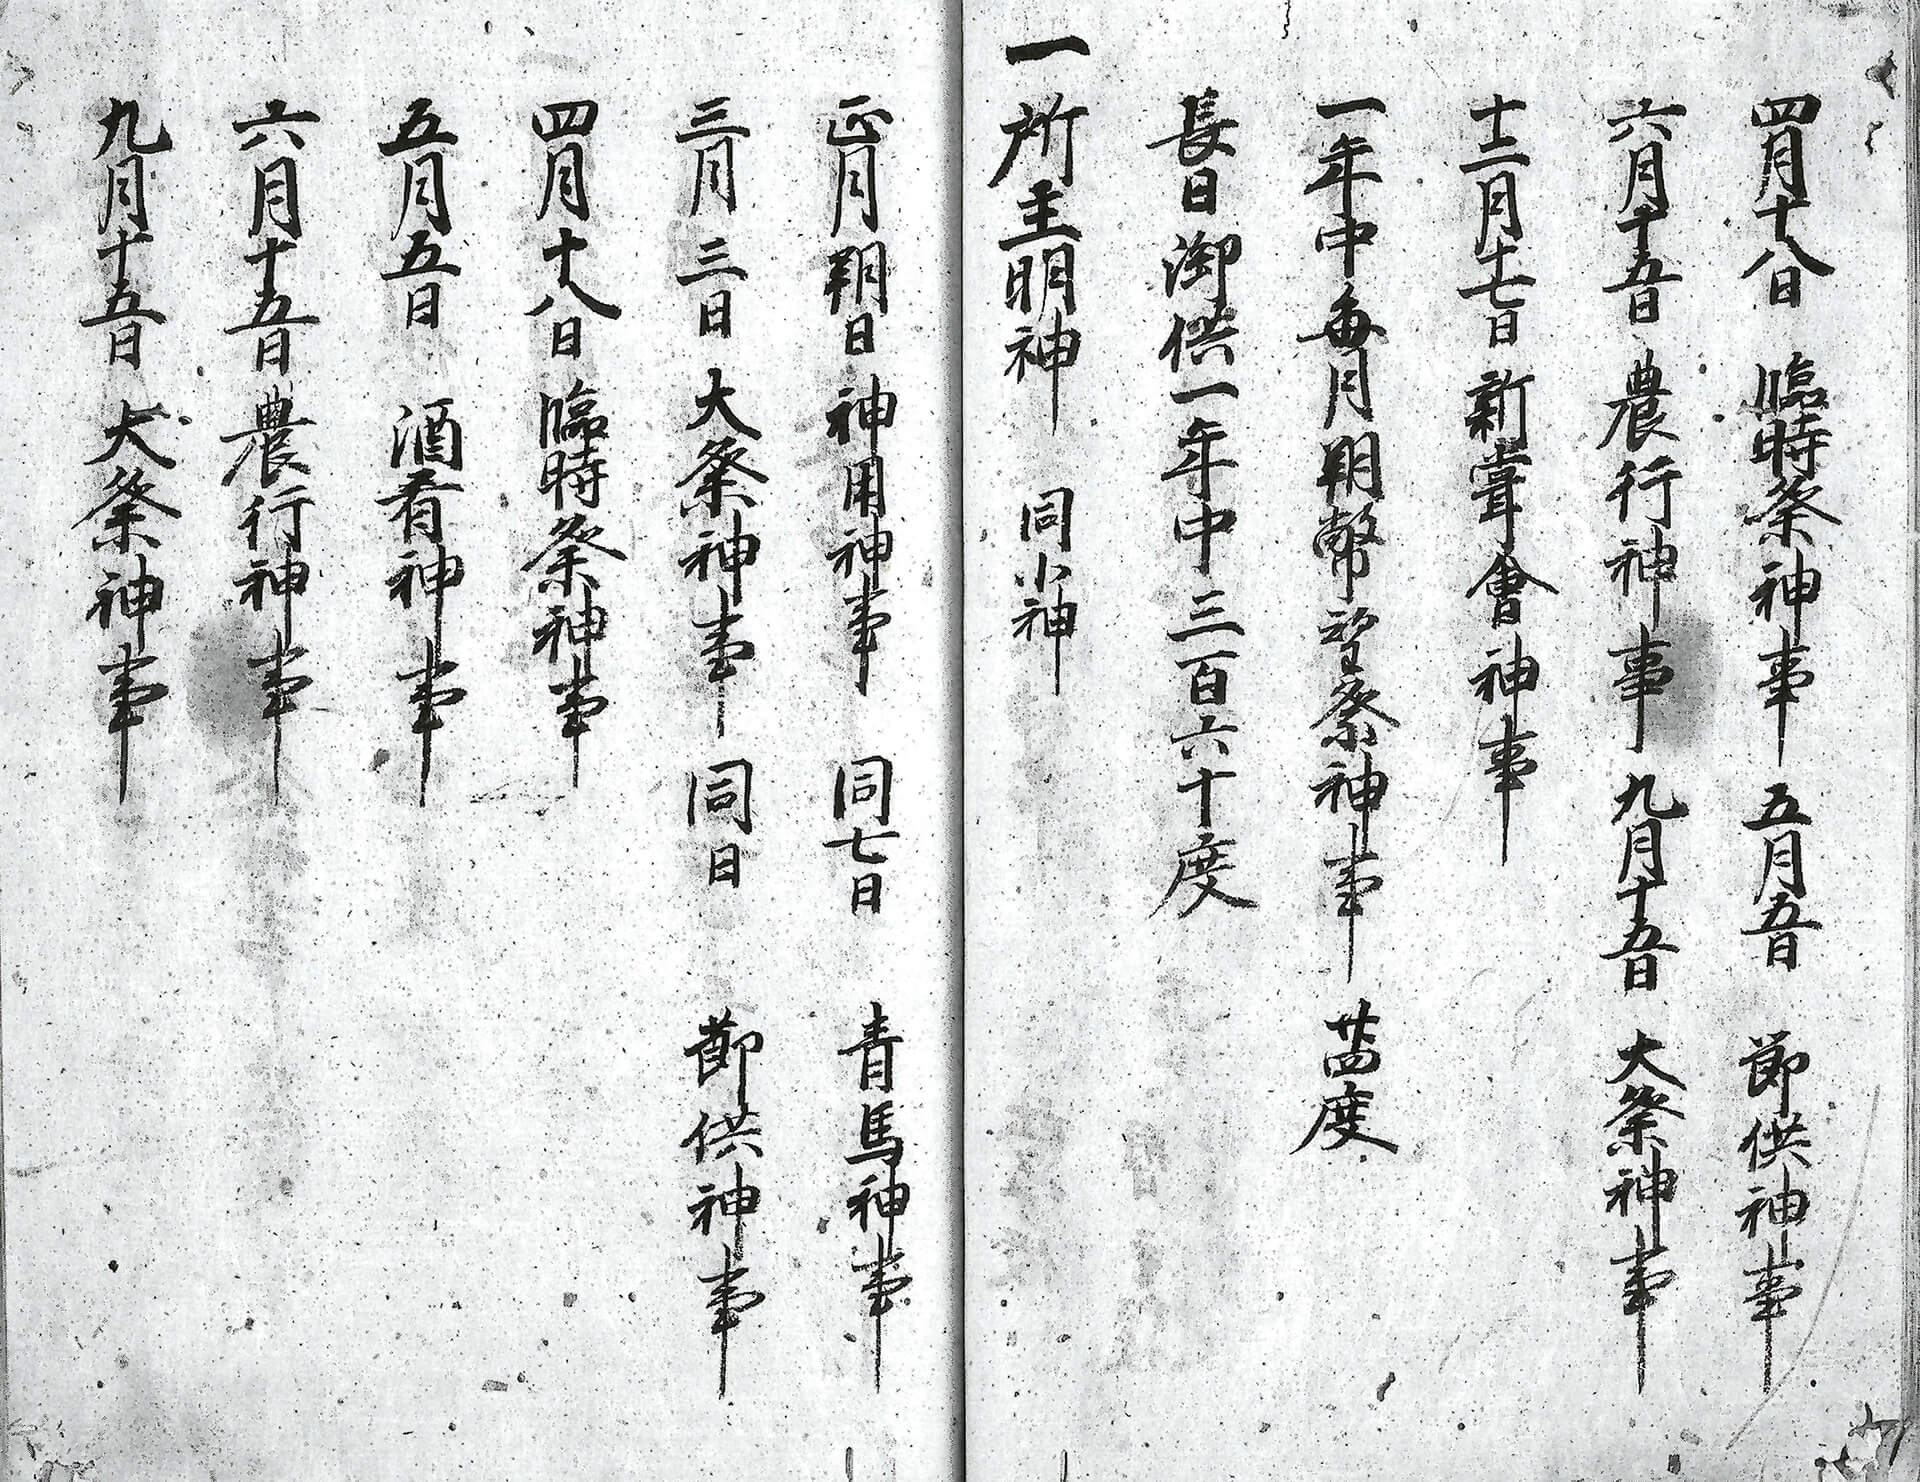 四月十八日 臨時祭神事 五月五日 節供神事
六月十五日 農行神事 九月十五日 大祭神事
十二月十七日 新甞會神事
一年中毎月朔幣望祭神事 廿四度
長日御供一年中三百六十度
一所主明神 同小神
正月朔日神用神事 同七日 青馬神事
三月三日 大祭神事 同日 節供神事
四月十八日 臨時祭神事
五月五日 酒肴神事
六月十五日農行神事
九月十五日 大祭神事